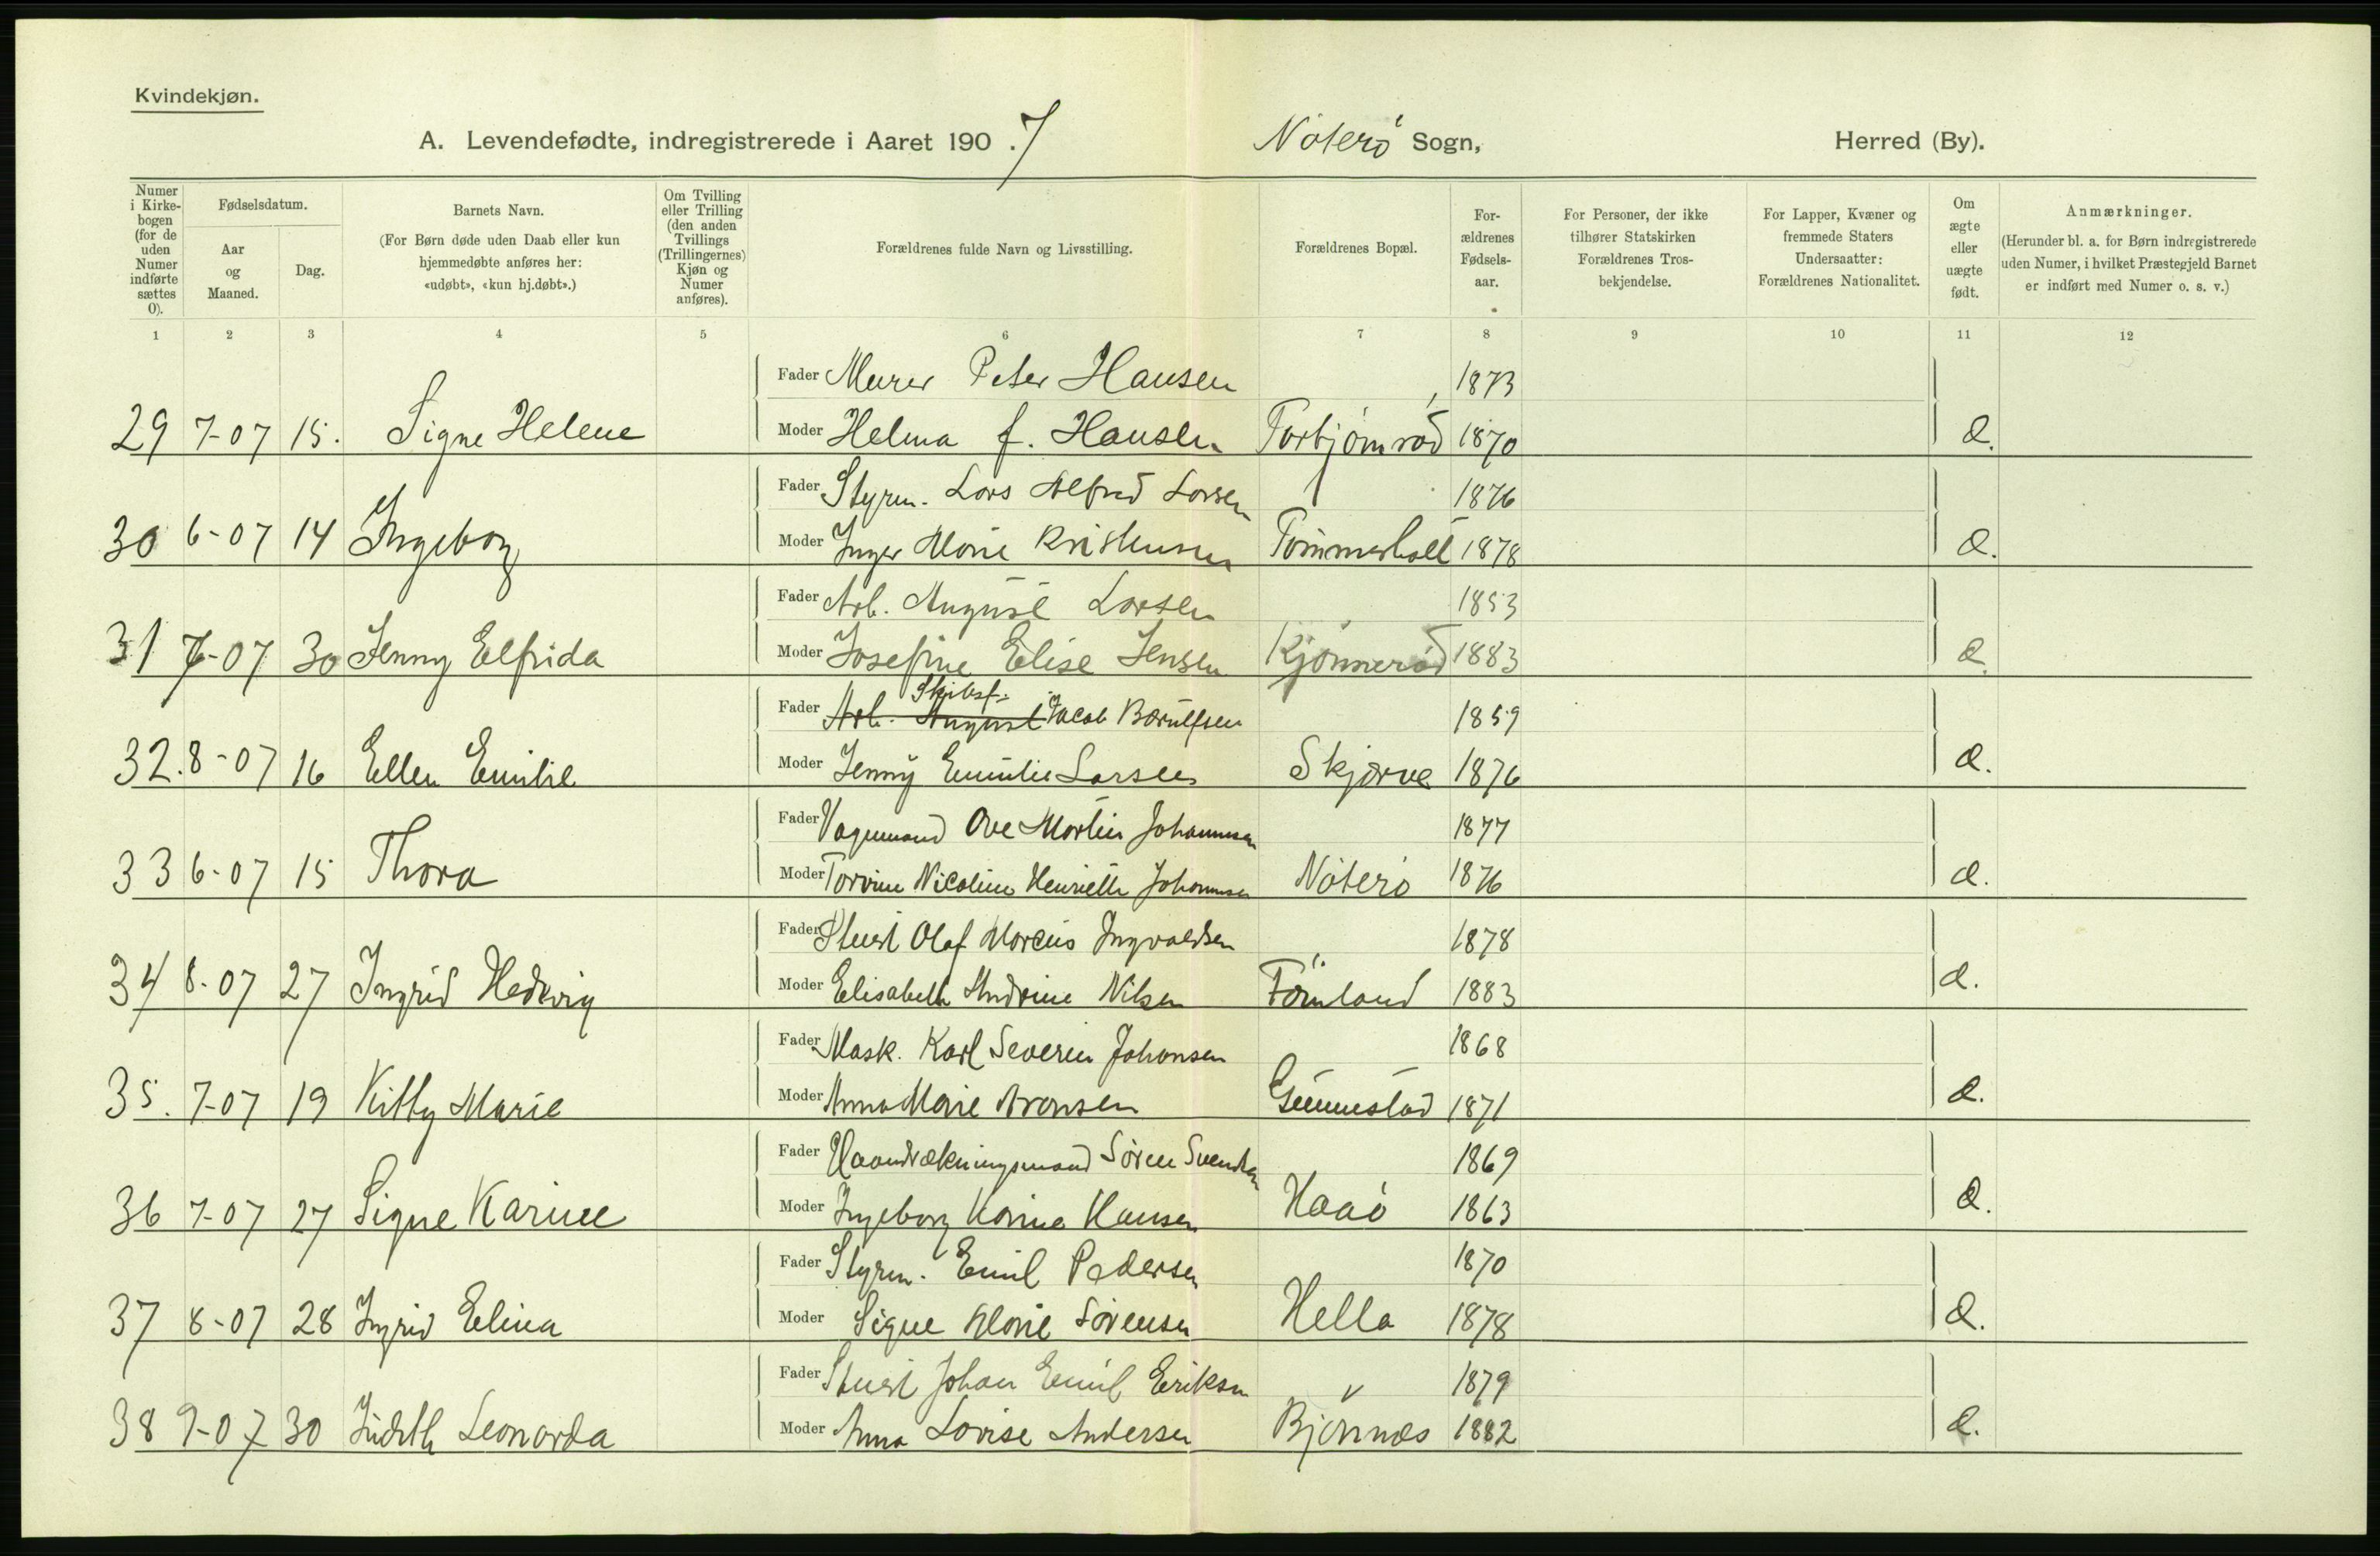 Kvindekjøn.
A. Levendefødte, indregistrerede i Aaret 190 . 7 Nøterø Sogn, Herred (By).
Numer i Kirke-bogen (for de uden Numer indførte sættes 0).
Fødselsdatum.
Aar og Maaned.
Dag.
Barnets Navn.
(For Børn døde uden Daab eller kun hjemmedøbte anføres her: «udøbt», «kun hj.døbt».)
Om Tvilling eller Trilling (den anden Tvillings (Trillingernes) Kjøn og Numer anføres).
Forældrenes fulde Navn og Livsstilling.
Forældrenes Bopæl.
For-ældrenes Fødsels-aar.
For Personer, der ikke tilhører Statskirken Forældrenes Tros-bekjendelse.
For Lapper, Kvæner og fremmede Staters Undersaatter: Forældrenes Nationalitet.
Om ægte eller uægte født.
Anmærkninger.
(Herunder bl. a. for Børn indregistrerede uden Numer, i hvilket Præstegjeld Barnet er indført med Numer o. s. v.)
1 2 3 4 5 6 7 8 9 10 11 12
Fader Murer Peter Hansen 1873
29 7-07 15. Signe Helene Moder Helma f. Hansen Torbjørnrød 1870 Æ.
Fader Styrm. Lars Alfred Larsen 1876
30 6-07 14 Ingeborg Moder Inger Marie Kristensen Tømmerholt 1878 Æ.
Fader Arb. August Larsen 1853
31 7-07 30 Jenny Elfrida Moder Josefine Elise Jensen Kjønnerød 1883 Æ.
Skibsf.
Fader Arb. August Jacob Børulfsen 1859
32. 8-07 16 Ellen Emilie Moder Jenny Emilie Larsen Skjerve 1876 Æ.
Fader Vognmand Ove Martin Johannsen 1877
33 6-07 15 Thora Moder Torvine Nicoline Henriette Johannsen Nøterø 1876 Æ.
Fader Stuert Olaf Marcus Ingvaldsen 1878
34 8-07 27 Ingrid Hedvig Moder Elisabeth Andrine Nilsen Førnland 1883 Æ.
Fader Mask. Karl Severin Johansen 1868
35. 7-07 19 Kitty Marie Moder Anna Marie Aronsen Gunnestad 1871 Æ.
Fader Haandrækningsmand Søren Svendsen 1869
36 7-07 27 Signe Karine Moder Ingeborg Karine Hansen Haaø 1863 Æ.
Fader Styrm. Emil Pedersen 1870
37 8-07 28 Ingrid Elina Moder Signe Marie Sørensen Hella 1878 Æ.
Fader Stuert Johan Emil Eriksen 1879
38 9-07 30 Judith Leonarda Moder Anna Lovise Andersen Bjønnes 1882 Æ.